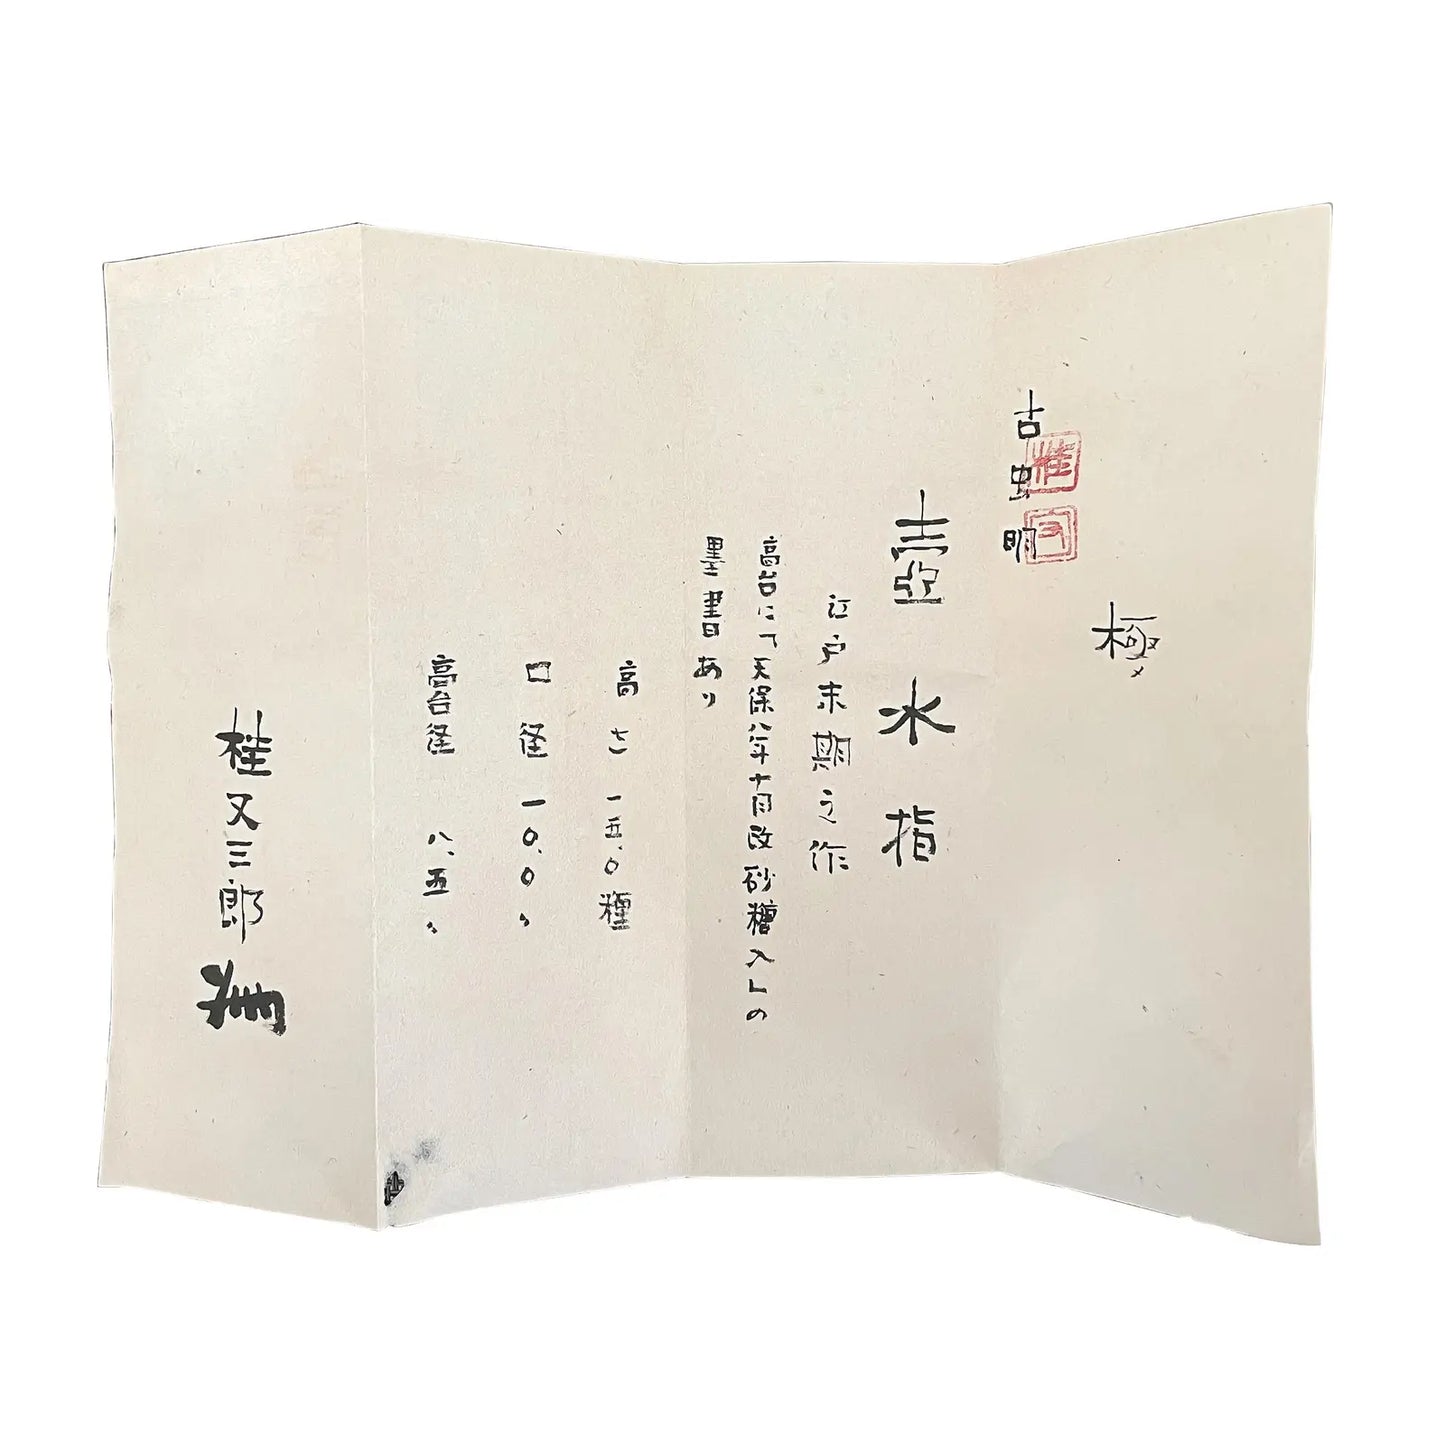 極
古虫明
桂
又
壺水指
江戸末期之作
高台に「天保八年十月改砂糖入」の
墨書あり
高さ 一五.〇糎
口径 一〇.〇〃
高台径 八.五〃
桂又三郎